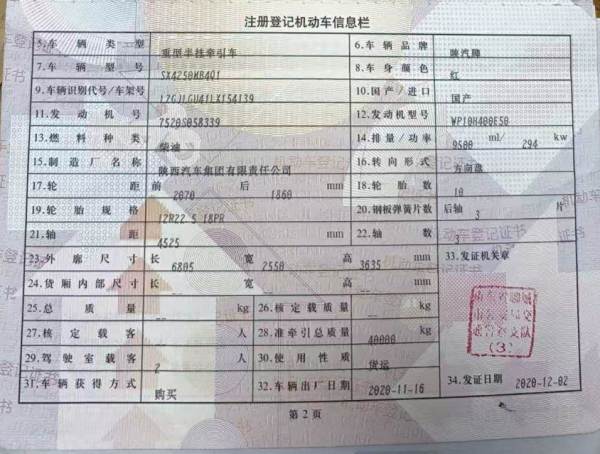 注册登记机动车信息栏
5.车辆类型 重型半挂牵引车 6.车辆品牌 陕汽牌
7.车辆型号 SX4250MB4Q1 8.车身颜色 红
9.车辆识别代号/车架号 LZGJLGU41LX154139 10.国产/进口 国产
11.发动机号 7520S058339 12.发动机型号 WP10H400E50
13.燃料种类 柴油 14.排量/功率 9500 ml/ 294 kw
15.制造厂名称 陕西汽车集团有限责任公司 16.转向形式 方向盘
17.轮距 前 2070 后 1860 mm 18.轮胎数 10
19.轮胎规格 12R22.5 18PR 20.钢板弹簧片数 后轴 3 片
21.轴距 4525 mm 22.轴数 3
23.外廓尺寸 长 6805 宽 2550 高 3635 mm 33.发证机关章
24.货厢内部尺寸 长 -- 宽 -- 高 -- mm
25.总质量 -- kg 26.核定载质量 -- kg
27.核定载客 -- 人 28.准牵引总质量 40000 kg
29.驾驶室载客 2 人 30.使用性质 货运
31.车辆获得方式 购买 32.车辆出厂日期 2020-11-16 34.发证日期 2020-12-02
(3)
第2页